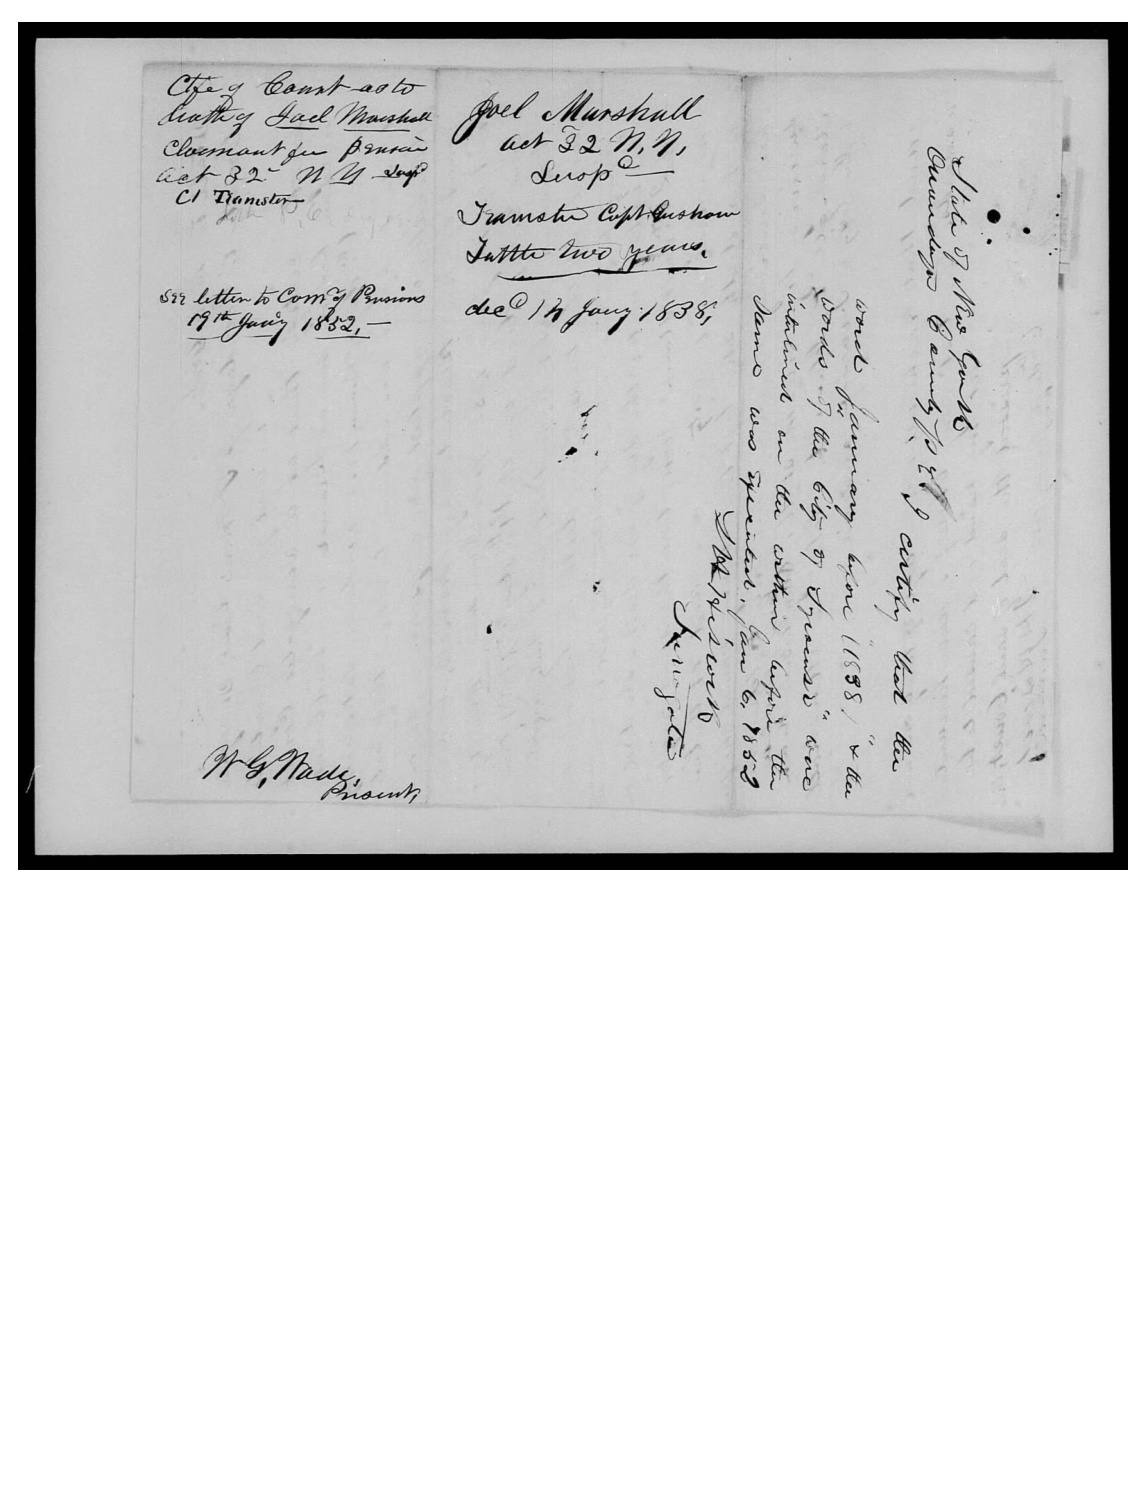 Ctfe of Court as to
death of Joel Marshall
Claimant for Pension
act 32 N Y Suspd
Cl Teamster
See letter to Comr of Pensions
19th Jany 1852,—
W G, Wade,
Present,
Joel Marshall
act 32 N. Y,
Suspd
Teamster Capt
Tuttle two years.
decd 14 Jany. 1838,
State of New York
Onondaga County Ss I certify that the
word "January before (1838)" & the
words "of the City of Syracuse" were
interlined on the within before the
same was executed, Jan 6, 1852
Hiscock
Surrogate